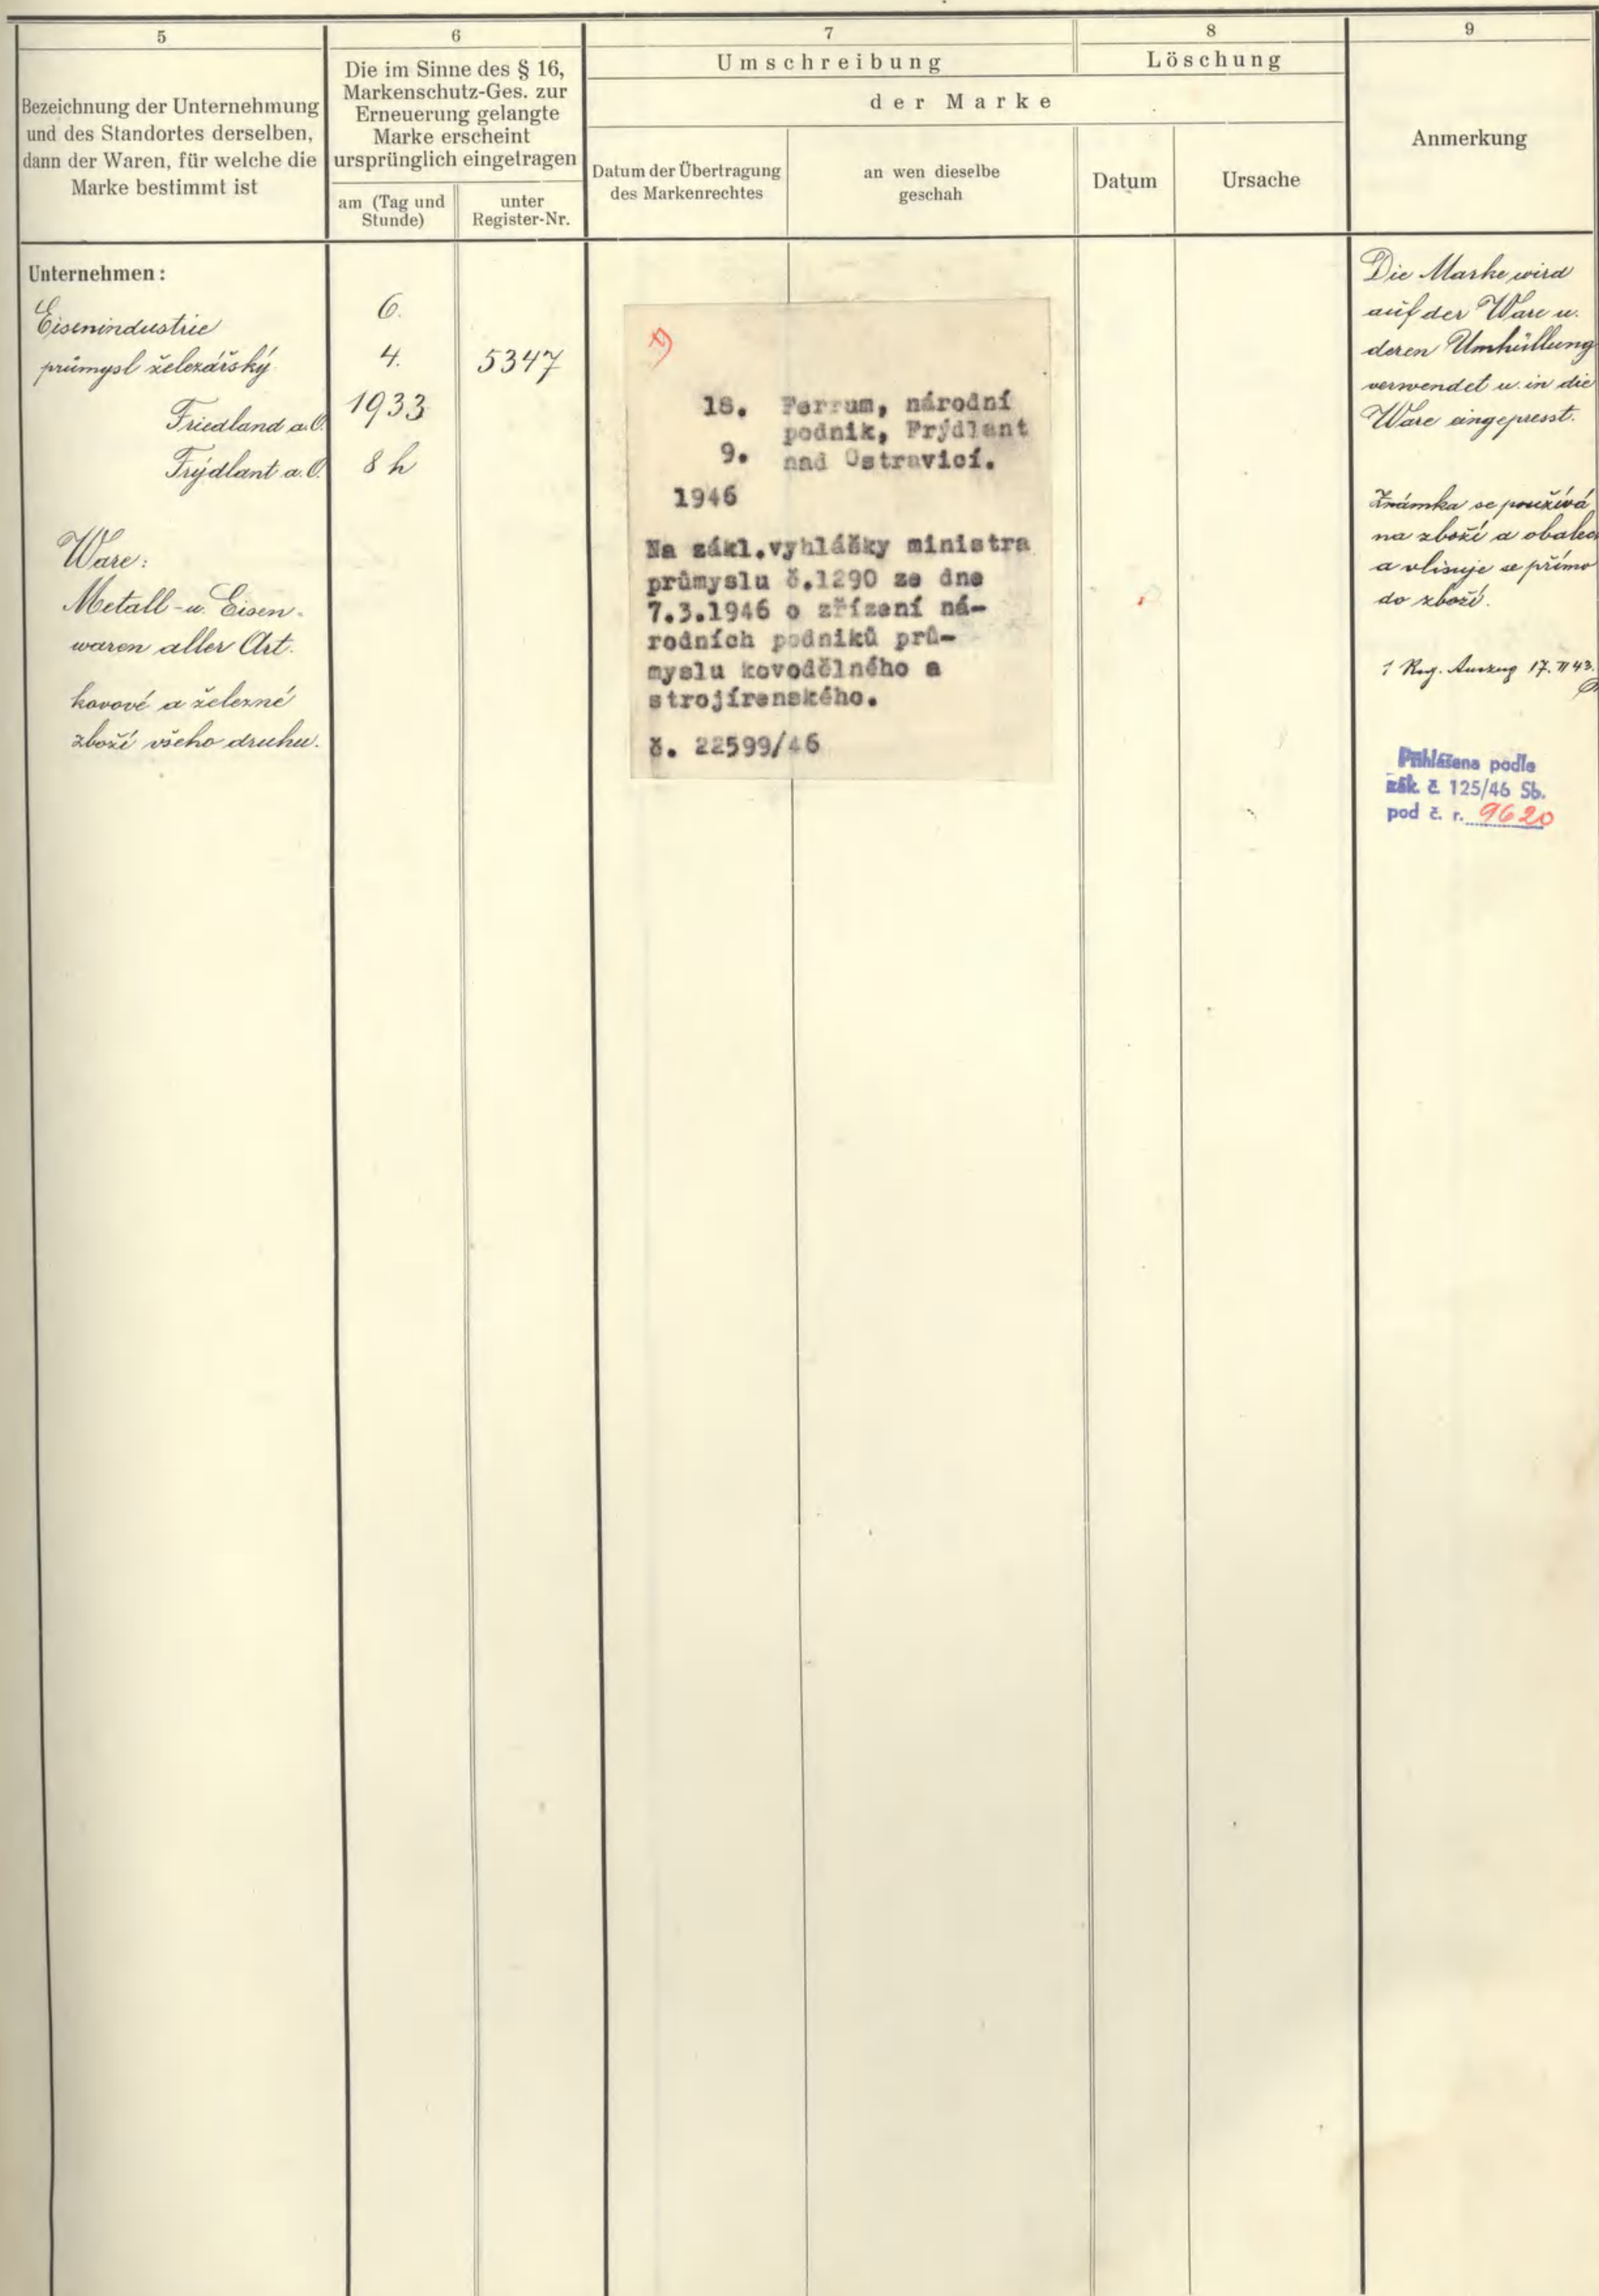 5
Bezeichnung der Unternehmung
und des Standortes derselben,
dann der Waren, für welche die
Marke bestimmt ist
6
Die im Sinne des § 16,
Markenschutz-Ges. zur
Erneuerung gelangte
Marke erscheint
ursprünglich eingetragen
am (Tag und
Stunde)
unter
Register-Nr.
7
Umschreibung
8
Löschung
der Marke
Datum der Übertragung
des Markenrechtes
an wen dieselbe
geschah
Datum
Ursache
9
Anmerkung
Unternehmen:
Eisenindustrie
průmysl železářský
Friedland a.O.
Frýdlant a.O.
Ware:
Metall- u. Eisen-
waren aller Art.
kovové a železné
zboží všeho druhu.
6.
4.
1933
8 h
5347
18. Ferrum, národní
podnik, Frýdlant
9. nad Ostravicí.
1946
Na zákl.vyhlášky ministra
průmyslu č.1290 ze dne
7.3.1946 o zřízení ná-
rodních podniků prů-
myslu kovodělného a
strojírenského.
č. 22599/46
Die Marke wird
auf der Ware u.
deren Umhüllung
verwendet u. in die
Ware eingepresst.
Známka se používá
na zboží a obalech
a vlisuje se přímo
do zboží.
1 Reg. Auszug 17. 43.
Přihlášena podle
zák. č. 125/46 Sb.
pod č. r. 9620